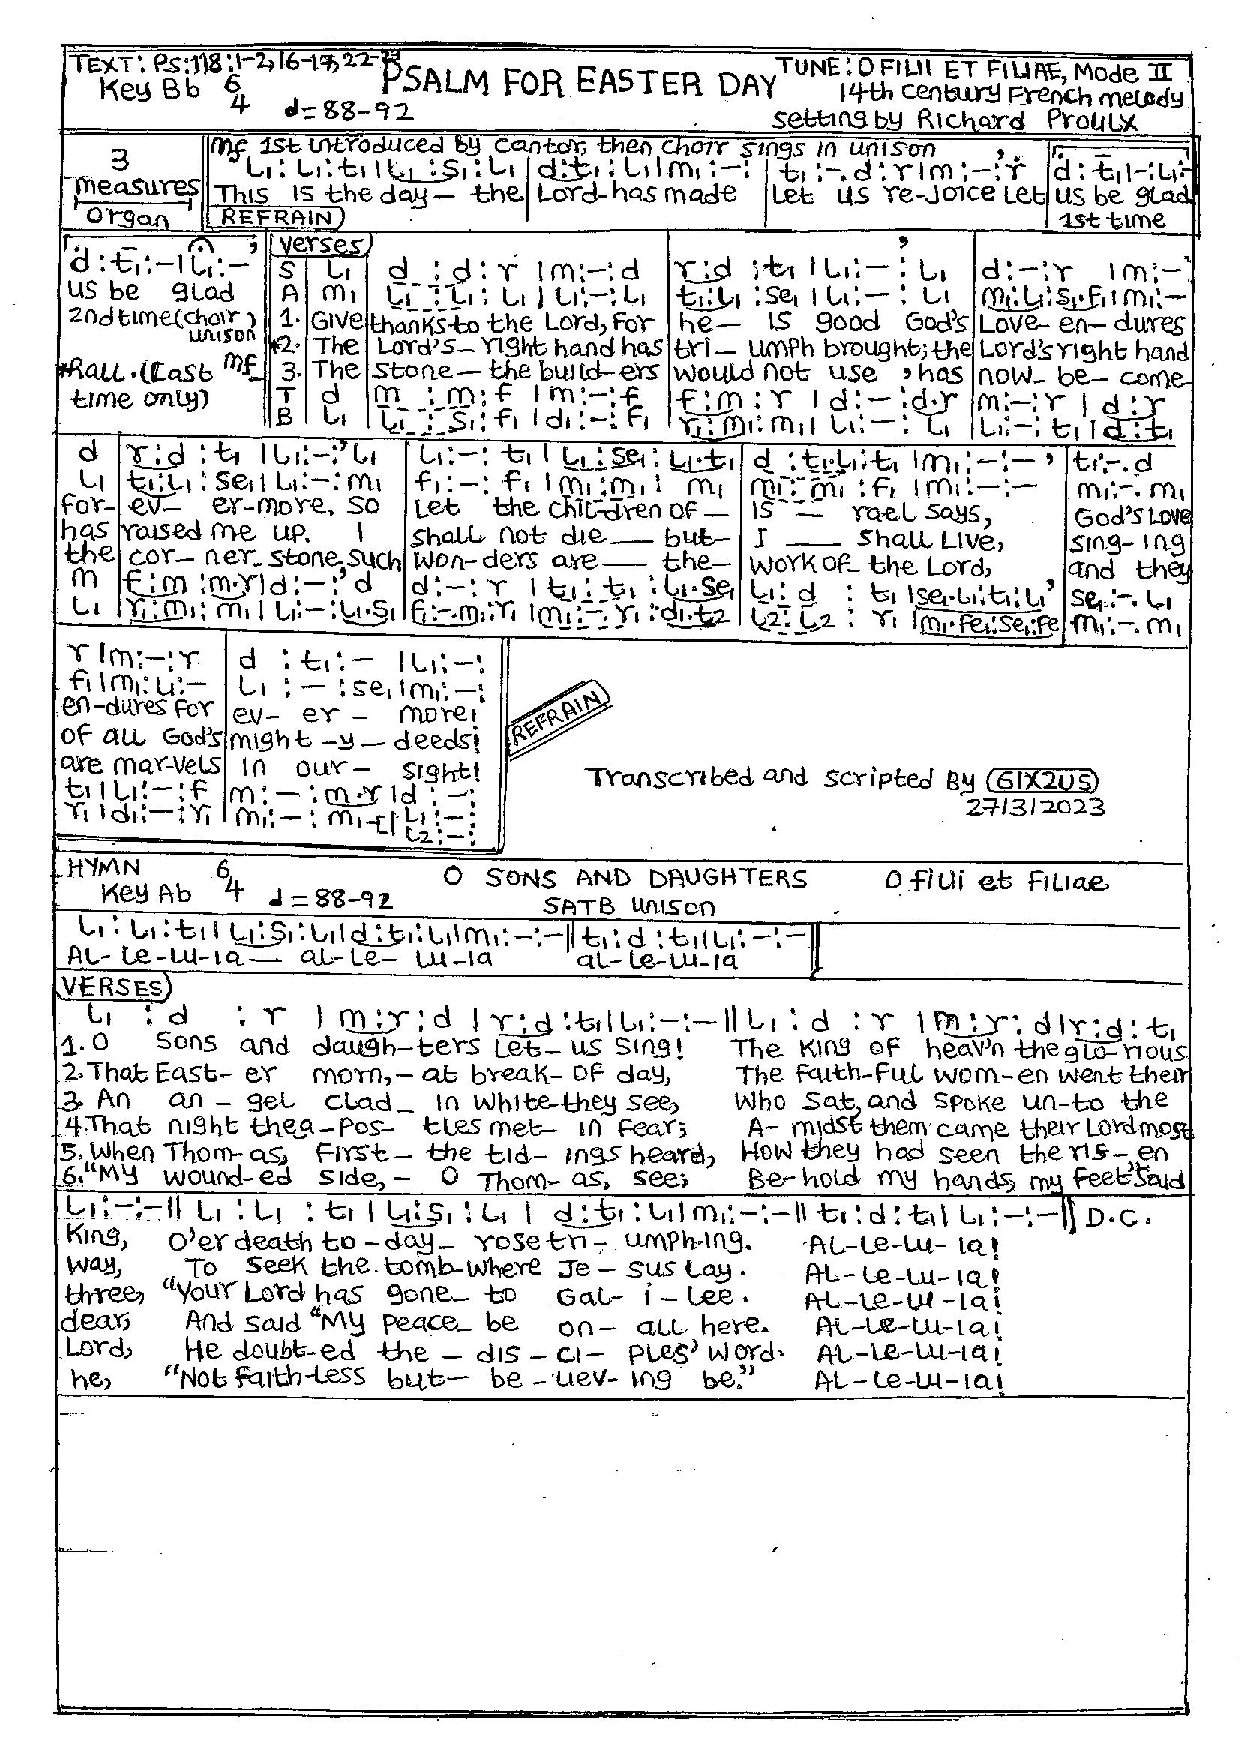 TEXT: Ps:118:1-2,16-17,22-23
PSALM FOR EASTER DAY
TUNE: O FILII ET FILIAE, Mode II
Key Bb 6/4 d=88-92
14th century French melody
setting by Richard Proulx
3 measures organ
mf 1st introduced by cantor, then choir sings in unison
l₁:l₁:t₁|l₁:s₁:l₁|d:t₁:l₁|m₁:-:|t₁:-.d:r|m:-:r|d:t₁|-:l₁:-
This is the day— the Lord-has made Let us re-joice Let us be glad
REFRAIN
1st time
d:t₁:-|l₁:-
us be glad
2nd time (choir unison)
*Rall. (Last time only)
mf
verses
S l₁ d:d:r|m:-:d r:d:t₁|l₁:-:l₁ d:-:r|m:-
A m₁ l₁:l₁:l₁|l₁:-:l₁ t₁:l₁:se₁|l₁:-:l₁ m₁:l₁:s₁.f₁|m₁:-
1. Give thanks-to the Lord, for he— is good God's Love-en-dures
*2. The Lord's- right hand has tri- umph brought; the Lord's right hand
3. The stone- the build-ers would not use, has now- be-come
T d m:m:f|m:-:f f:m:r|d:-:d.r m:-:r|d:r
B l₁ l₁:s₁:f₁|d₁:-:f₁ r₁:m₁:m₁|l₁:-:l₁ l₁:-:t₁|d:t₁
d r:d:t₁|l₁:-:l₁ l₁:-:t₁|l₁:se₁:l₁.t₁ d:t₁.l₁:t₁|m₁:-:- t₁:-.d
l₁ t₁:l₁:se₁|l₁:-:m₁ f₁:-:f₁|m₁:m₁:m₁ m₁:m₁:f₁|m₁:-:- m₁:-.m₁
for- ev- er-more, so Let the chil-dren of— is — rael says, God's Love
has raised me up. I shall not die — but- I — shall Live, sing-ing
the cor-ner-stone, such won-ders are — the- work of- the Lord, and they
m f:m:m.r|d:-:d d:-:r|t₁:t₁:l₁.se₁ l₁:d:t₁|se₁.l₁:t₁:l₁ se₁:-.l₁
l₁ r₁:m₁:m₁|l₁:-:l₁.s₁ f₁:-.m₁:r₁|m₁:-.r₁:d₁.t₂ l₂:l₂:r₁|m₁.fe₁:se₁:fe m₁:-.m₁
r|m:-:r d:t₁:-|l₁:-:
f₁|m₁:l₁:- l₁:-:se₁|m₁:-:
en-dures for ev- er- more!
of all God's might-y- deeds!
are mar-vels in our- sight!
t₁|l₁:-:f m:-:m.r|d:-:
r₁|d₁:-:r₁ m₁:-:m₁-[l₁:-: l₂:-:
REFRAIN
Transcribed and scripted By GIX2US
27/3/2023
HYMN
Key Ab 6/4 d=88-92
O SONS AND DAUGHTERS O filii et Filiae
SATB unison
l₁:l₁:t₁|l₁:s₁:l₁|d:t₁:l₁|m₁:-:-||t₁:d:t₁|l₁:-:-||
AL-le-lu-ia— al-le- lu-ia al-le-lu-ia
VERSES
l₁:d:r|m:r:d|r:d:t₁|l₁:-:-||l₁:d:r|m:r:d|r:d:t₁
1. O Sons and daugh-ters Let- us Sing! The King of heav'n the glo-rious
2. That East-er morn,- at break-of day, The faith-ful wom-en went their
3. An an-gel clad- in white-they see, Who sat, and spoke un-to the
4. That night the a-pos-tles met- in fear; A-midst them came their Lord most
5. When Thom-as, first- the tid-ings heard, How they had seen the ris-en
6. "My wound-ed side,- O Thom-as, see; Be-hold my hands, my feet," said
l₁:-:-||l₁:l₁:t₁|l₁:s₁:l₁|d:t₁:l₁|m₁:-:-||t₁:d:t₁|l₁:-:-|| D.C.
King, O'er death to-day- rose tri-umph-ing. AL-le-lu-ia!
way, To seek the tomb-where Je-sus Lay. AL-le-lu-ia!
three, "Your Lord has gone- to Gal-i-lee. AL-le-lu-ia!
dear; And said "My peace- be on- all here. AL-le-lu-ia!
Lord, He doubt-ed the- dis-ci-ples' word. AL-le-lu-ia!
he, "Not faith-less but- be-liev-ing be." AL-le-lu-ia!